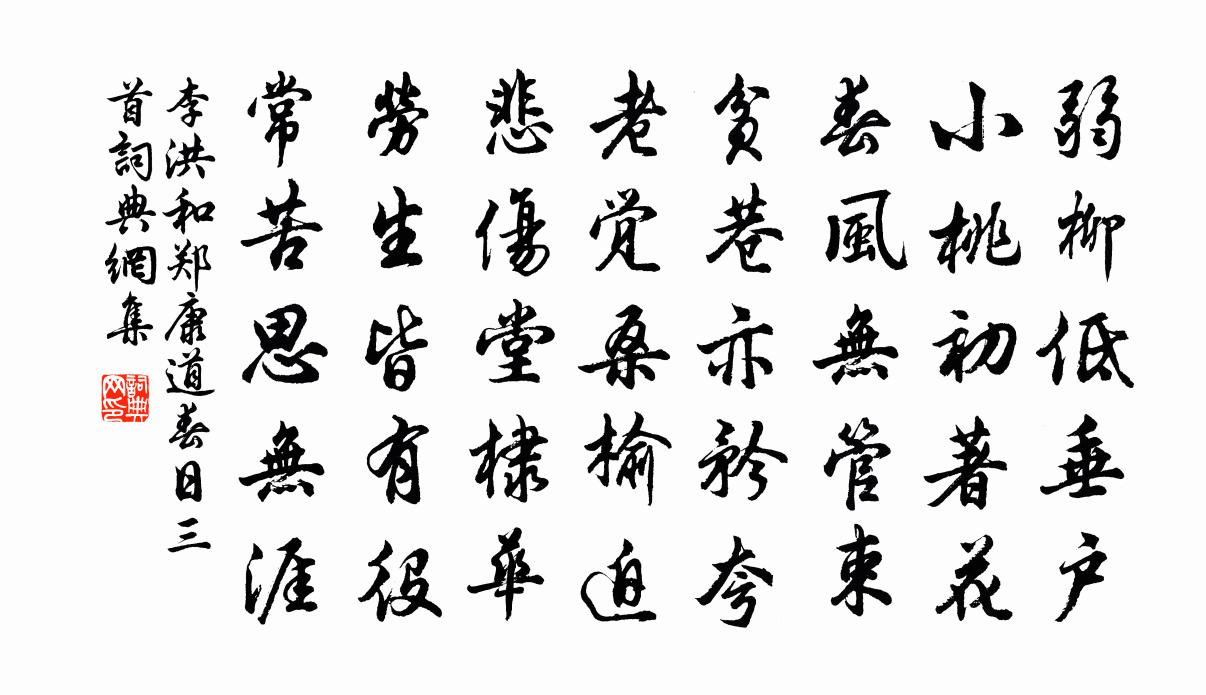 弱柳低垂户
小桃初著花
春風無管束
貧巷亦矜夸
老觉桑榆迫
悲傷堂棣華
勞生皆有役
常苦思無涯
李洪和郑康道春日三
首詞典網集
詞典网印